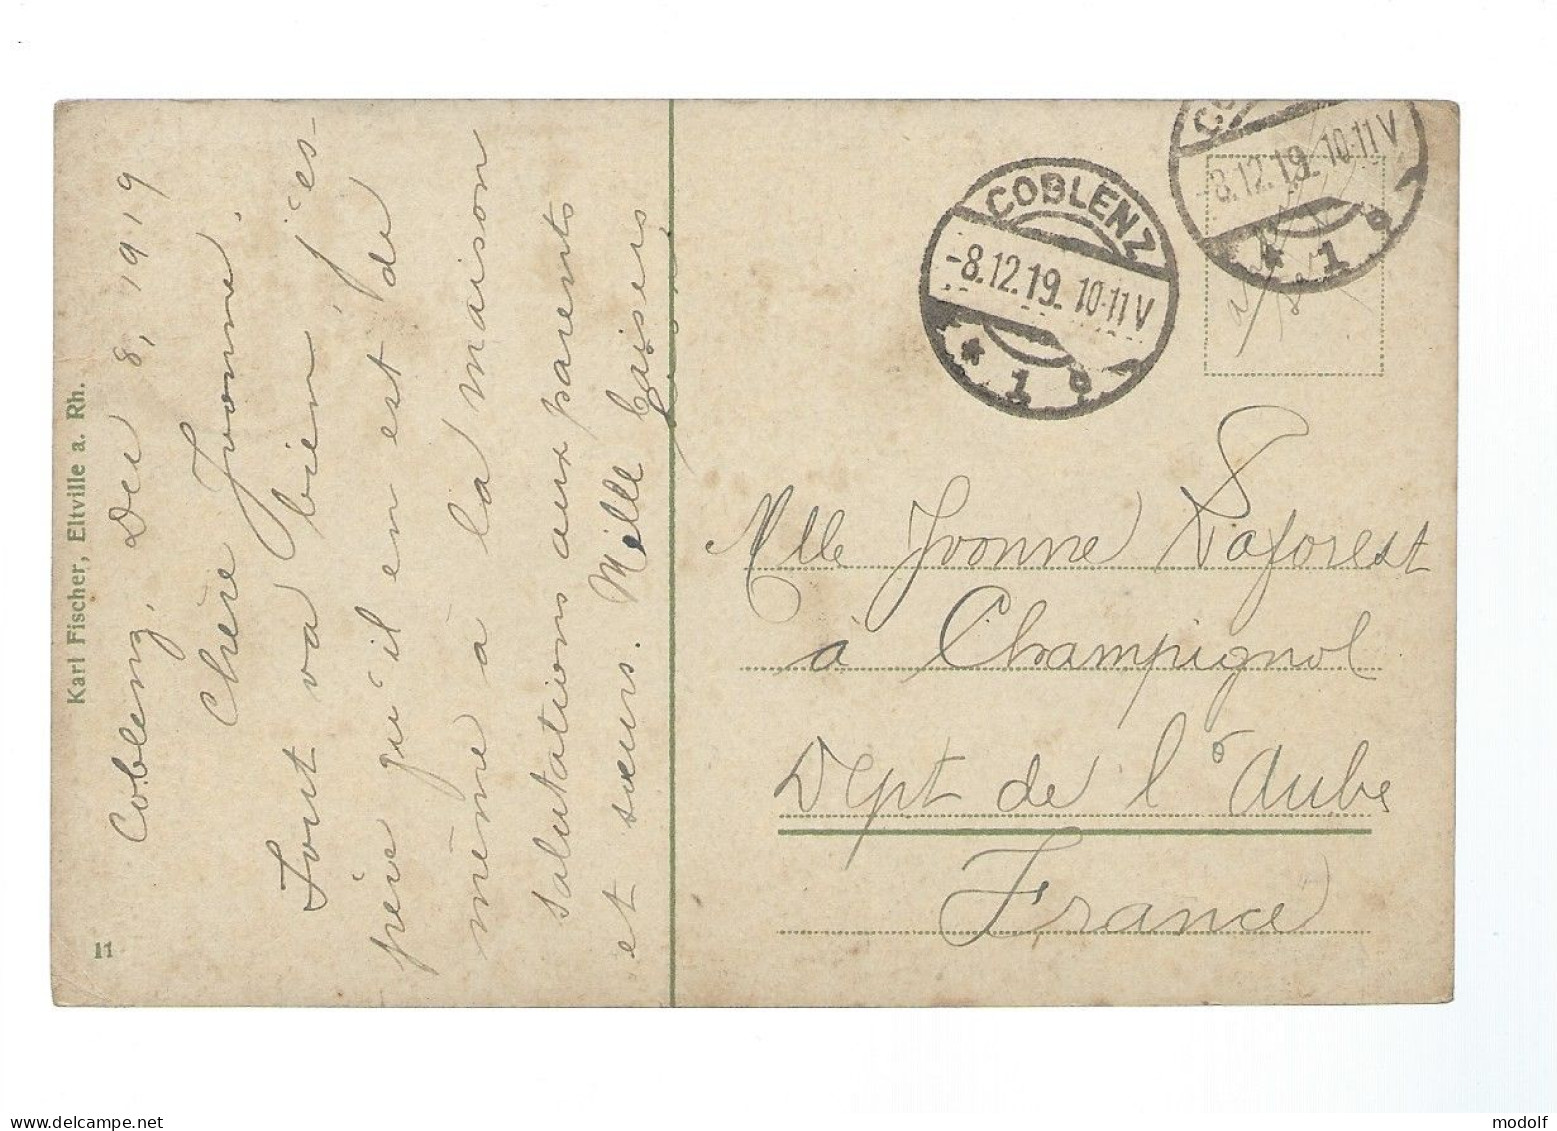 Coblenz, Dec 8, 1919
Chère Yvonne.
Tout va bien, j'es-
père qu'il en est de
même à la maison
salutations aux parents
et sœurs. Mille baisers
Karl Fischer, Eltville a. Rh.
11
COBLENZ
-8.12.19. 10-11 V
* 1 g
-8.12.19. 10-11 V
* 1 g
Mlle Yvonne Laforest
à Champignol
Dept de l'Aube
France
modolf